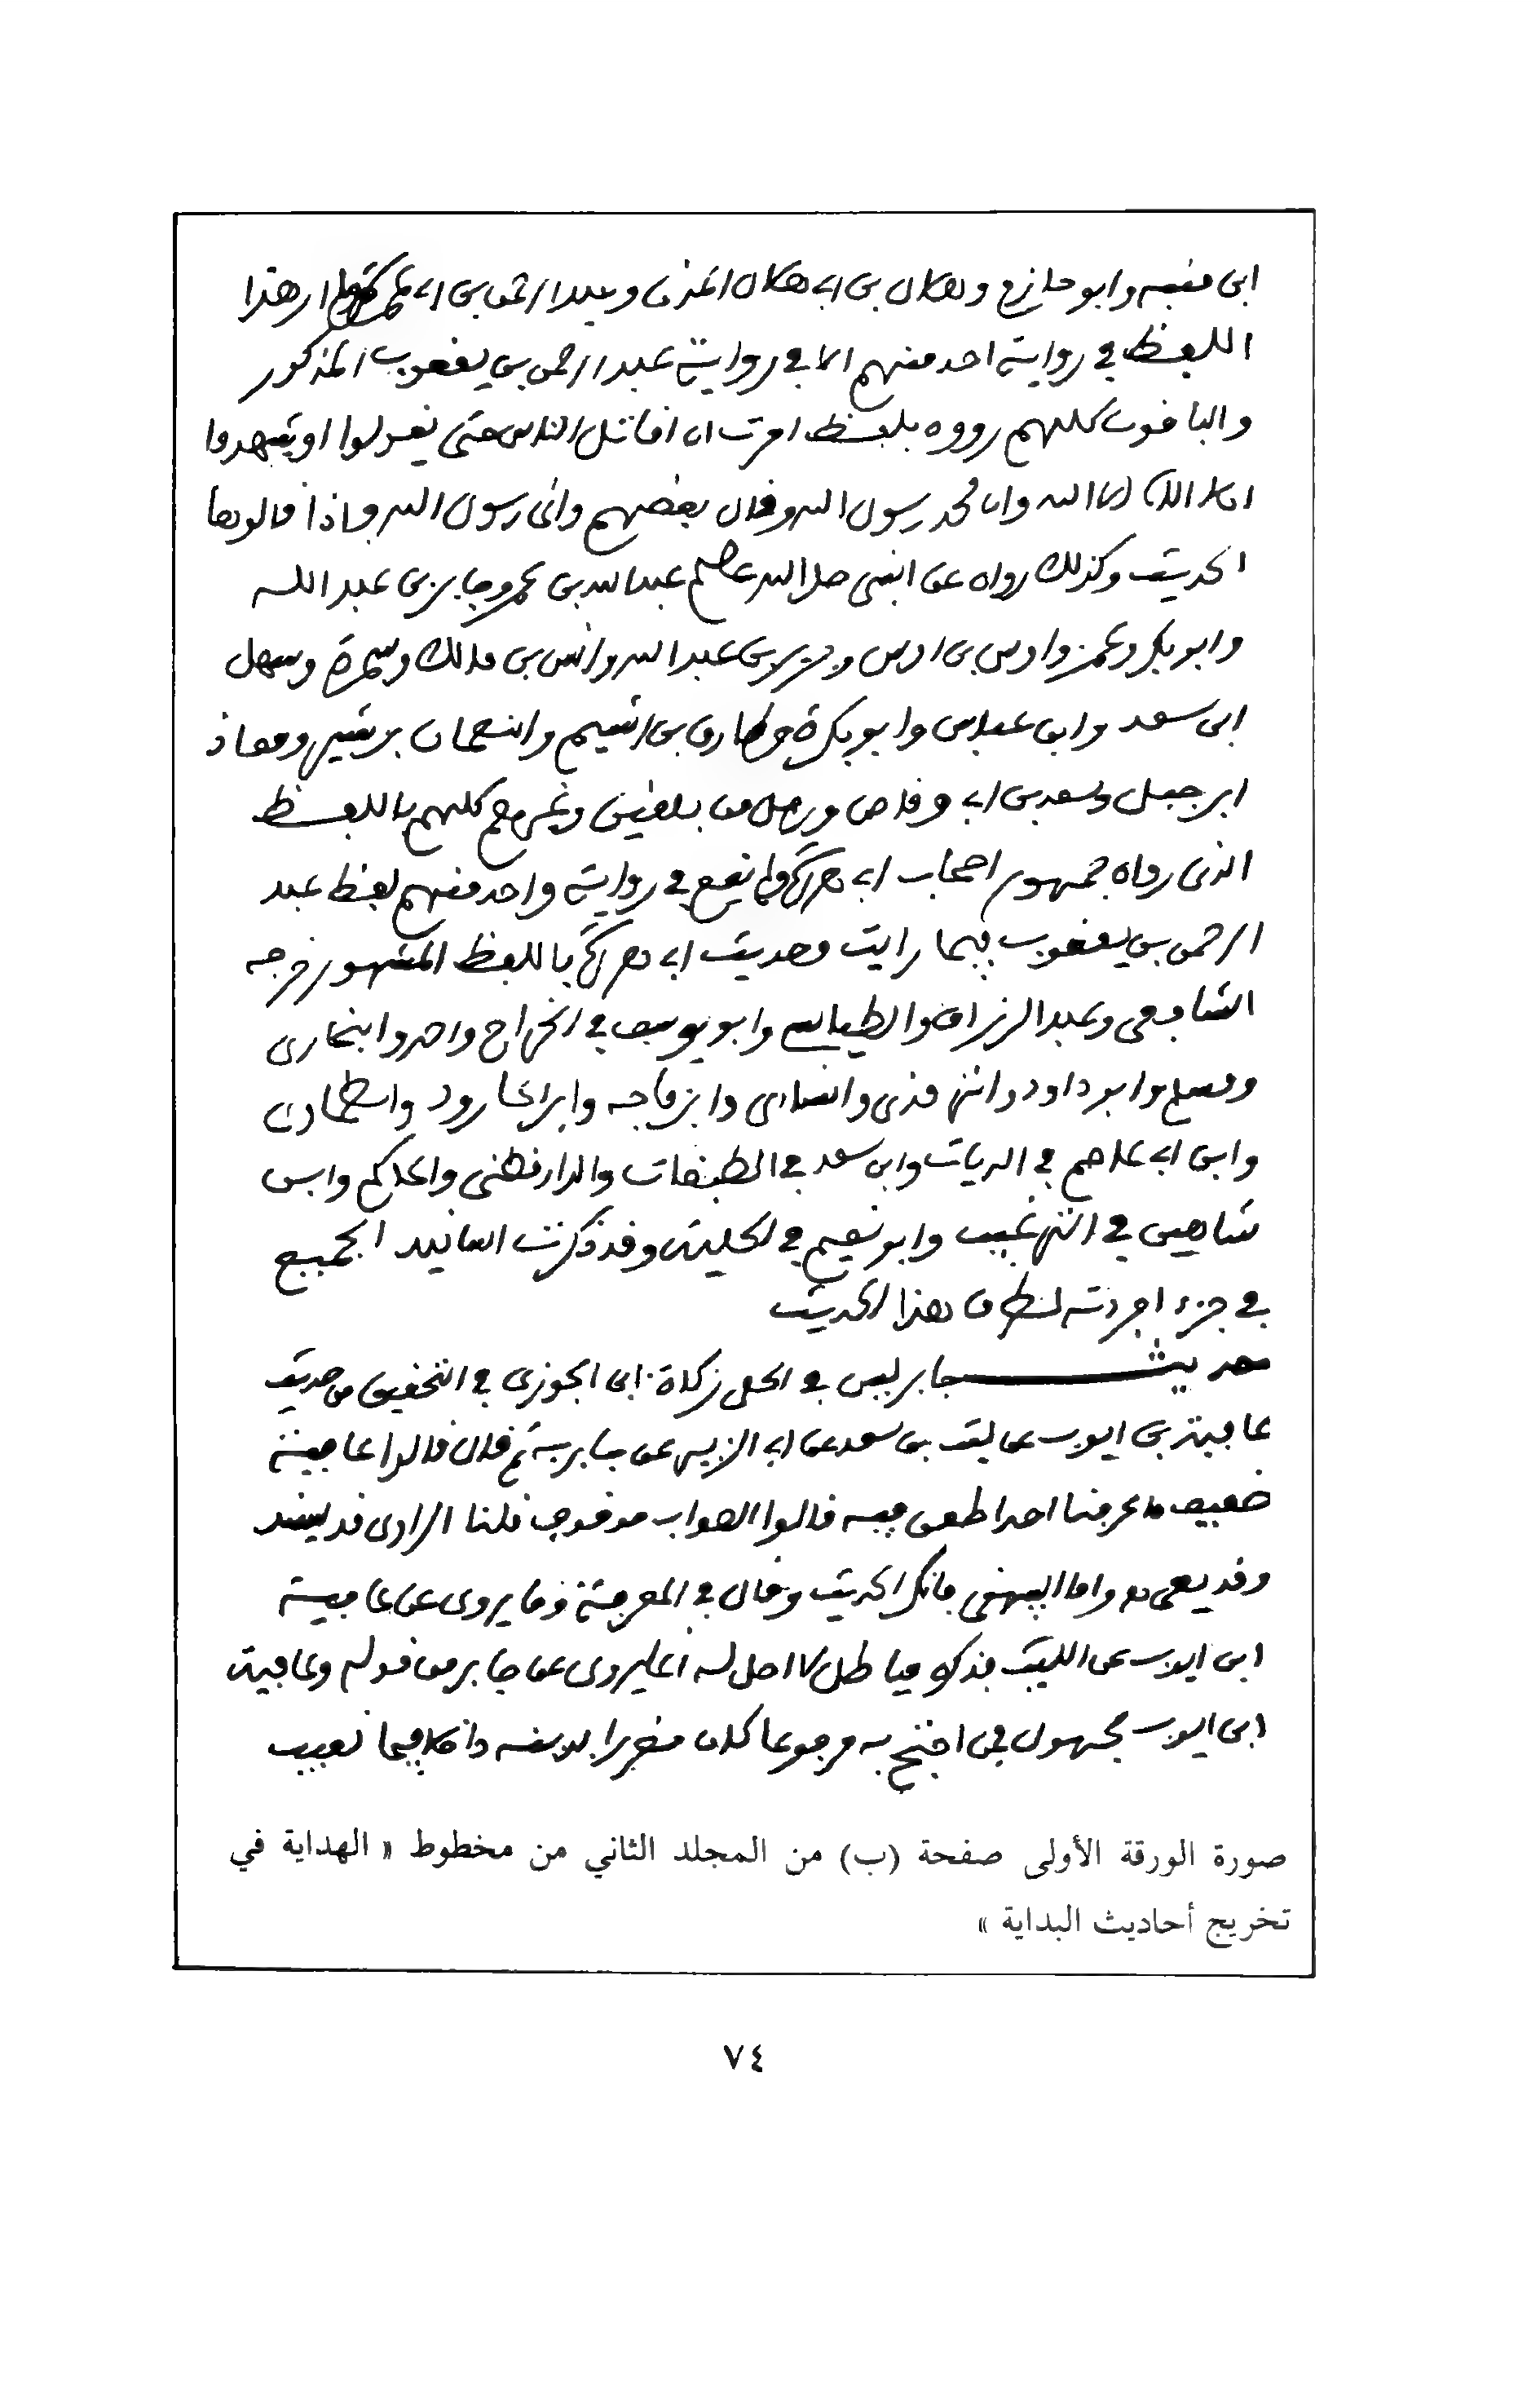 ابن منبه وابو حازم وهلال بن ابي هلال المدني وعبد الرحمن بن ابي عمرة ولم ار هذا
اللفظ في رواية احد منهم الا في رواية عبد الرحمن بن يعقوب المذكور
والباقون كلهم رووه بلفظ امرت ان اقاتل الناس حتى يقولوا او يشهدوا
ان لا اله الا الله وان محمد رسول الله وقال بعضهم واني رسول الله فاذا قالوها
الحديث وكذلك رواه عن النبي صلى الله عليه وسلم عبد الله بن عمر وجابر بن عبد الله
وابو بكر وعمر واوس بن اوس وجرير بن عبد الله وانس بن مالك وسمرة وسهل
ابن سعد وابن عباس وابو بكرة وطارق بن اشيم والنعمان بن بشير ومعاذ
ابن جبل وسعد بن ابي وقاص ورجل من بلقين وغيرهم كلهم باللفظ
الذي رواه جمهور اصحاب ابي هريرة ولم يقع في رواية واحد منهم لفظ عبد
الرحمن بن يعقوب فيما رايت وحديث ابي هريرة باللفظ المشهور خرجه
الشافعي وعبد الرزاق والطيالسي وابو يوسف في الخراج واحمد والبخاري
ومسلم وابو داود والترمذي والنسائي وابن ماجه وابن الجارود والطحاوي
وابن ابي عاصم في الديات وابن سعد في الطبقات والدارقطني والحاكم وابن
شاهين في الترغيب وابو نعيم في الحلية وقد ذكرت اسانيد الجميع
في جزء افردته لطرق هذا الحديث
حديث جابر ليس في الحلي زكاة ابن الجوزي في التحقيق من حديث
عافية بن ايوب عن ليث بن سعد عن ابي الزبير عن جابر به ثم قال قالوا عافية
ضعيف ما عرفنا احدا طعن فيه قالوا الصواب موقوف قلنا الراوي قد يسند
وقد يفتي به واما البيهقي فانكر الحديث وقال في المعرفة وما يروى عن عافية
ابن ايوب عن الليث فذكره فباطل لا اصل له انما يروى عن جابر من قوله وعافية
ابن ايوب مجهول فمن احتج به مرفوعا كان مغررا بدينه داخلا فيما نعيب
صورة الورقة الأولى صفحة (ب) من المجلد الثاني من مخطوط « الهداية في
تخريج أحاديث البداية »
٧٤